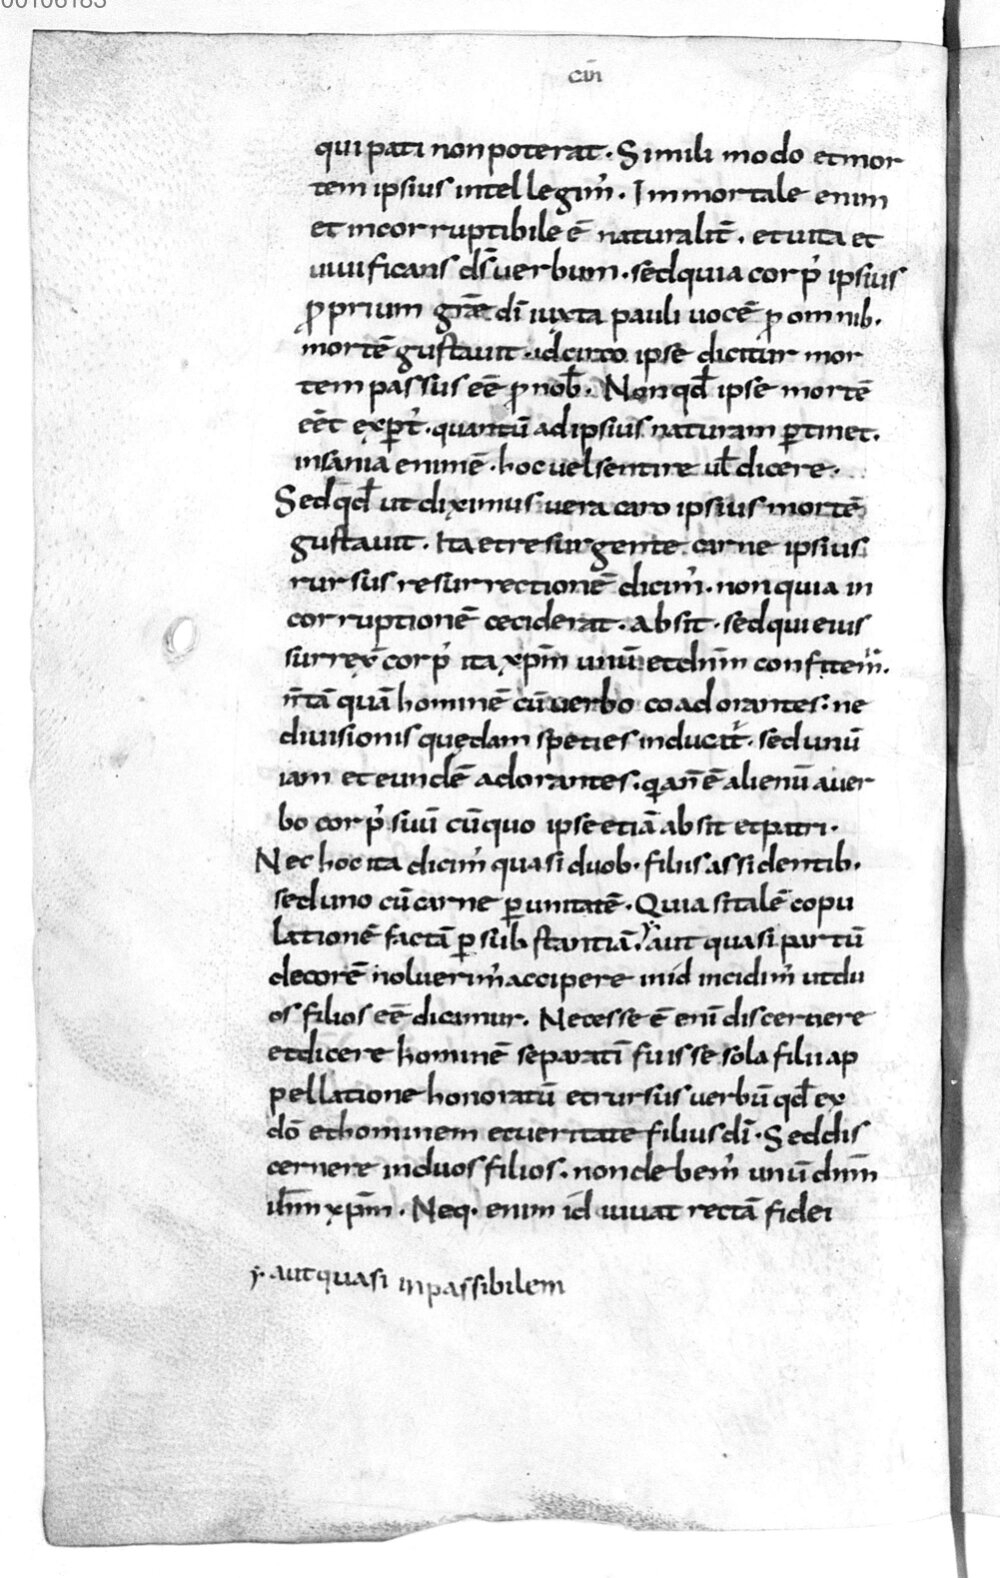 00106183
cııı
qui pati non poterat. Simili modo et mor
tem ipsius intellegim̃. Immortale enim
et incorruptibile ē naturalit̄. et uita et
uiuificans d̄s uerbum. sed quia corp̓ ipsius
ꝓprium gr̄ae dī iuxta pauli uocē ꝓ omnib.
mortē gustauit. idcirco ipse dicitur mor
tem passus eē ꝓ nob̄. Non qđ ipse mortē
eēt exꝑt̓. quantū ad ipsius naturam ꝑtinet.
insania enim ē. hoc uel sentire ul̄ dicere.
Sed qđ ut diximus uera caro ipsius mortē
gustauit. Ita et resurgente carne ipsius
rursus resurrectionē dicim̓. non quia in
corruptionē ceciderat. absit. sed qui eius
surrex̄ corp̓ ita xp̄m unū et dn̄m confitem̓.
n̄ tā quā hominē cū uerbo coadorantes: ne
diuisionis quędam species inducat̓. sed unū
iam et eundē adorantes. qa n̄ ē alienū a uer
bo corp̓ suū cū quo ipse etiā absit et patri.
Nec hoc ita dicim̓ quasi duob. filiis assidentib.
sed uno cū carne ꝑ unitatē. Quia si talē copu
lationē factā ꝑ substantiā. ẏ aut quasi parū
decorē noluerim̓ accipere in id incidim̓ ut du
os filios eē dicamur. Necesse ē enī discernere
et dicere hominē separatī fuisse sola filii ap
pellatione honoratū et rursus uerbū qđ ex
dō et hominem et ueritate filius dī. Sed dis
cernere in duos filios. non debem̓ unū dn̄m
ih̄m xp̄m. Neq. enim id iuuat rectā fidei
ẏ. aut quasi inpassibilem